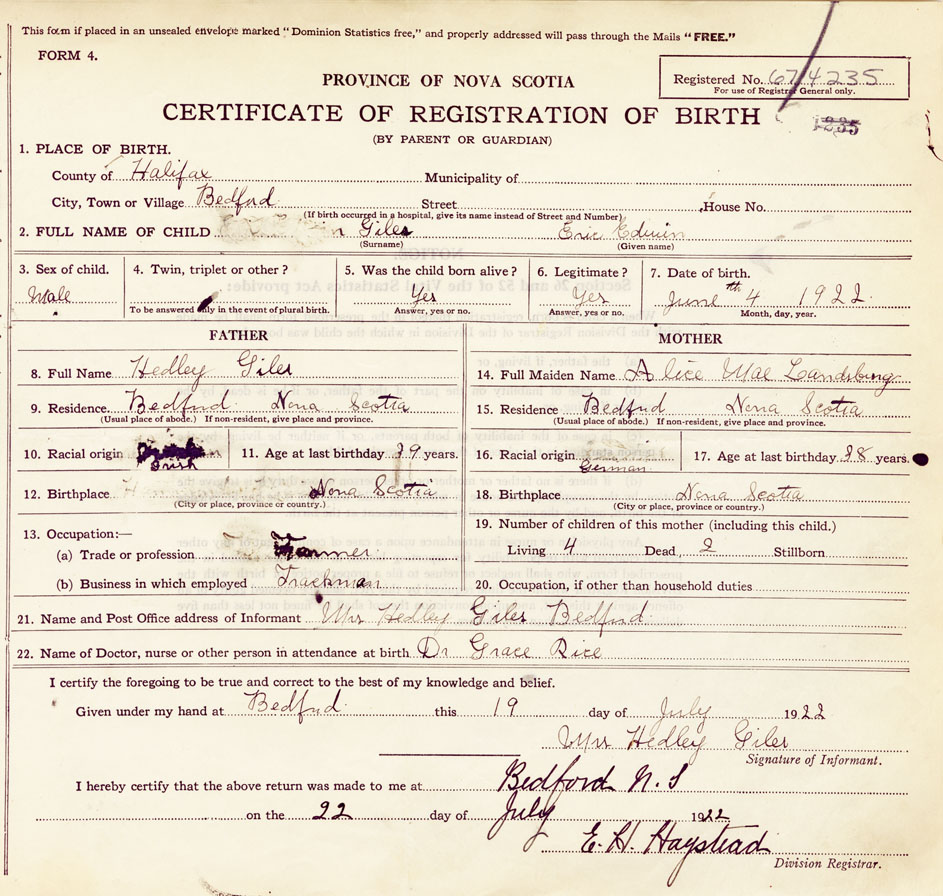 This form if placed in an unsealed envelope marked "Dominion Statistics free," and properly addressed will pass through the Mails "FREE."
FORM 4.
Registered No. 674235
For use of Registrar General only.
PROVINCE OF NOVA SCOTIA
CERTIFICATE OF REGISTRATION OF BIRTH
1235
(BY PARENT OR GUARDIAN)
1. PLACE OF BIRTH.
County of Halifax Municipality of
City, Town or Village Bedford Street House No.
(If birth occurred in a hospital, give its name instead of Street and Number)
2. FULL NAME OF CHILD Giles Eric Edwin
(Surname) (Given name)
3. Sex of child. 4. Twin, triplet or other? 5. Was the child born alive? 6. Legitimate? 7. Date of birth.
Male Yes Yes June 4th 1922
To be answered only in the event of plural birth. Answer, yes or no. Answer, yes or no. Month, day, year.
FATHER MOTHER
8. Full Name Hedley Giles 14. Full Maiden Name Alice Mae
9. Residence. Bedford Nova Scotia 15. Residence Bedford Nova Scotia
(Usual place of abode.) If non-resident, give place and province. (Usual place of abode.) If non-resident, give place and province.
10. Racial origin Irish 11. Age at last birthday 39 years. 16. Racial origin German 17. Age at last birthday 38 years.
12. Birthplace Nova Scotia 18. Birthplace Nova Scotia
(City or place, province or country.) (City or place, province or country.)
13. Occupation:— 19. Number of children of this mother (including this child.)
(a) Trade or profession Living 4 Dead, 2 Stillborn
(b) Business in which employed Trackman 20. Occupation, if other than household duties
21. Name and Post Office address of Informant Mrs Hedley Giles Bedford
22. Name of Doctor, nurse or other person in attendance at birth Dr Grace Rice
I certify the foregoing to be true and correct to the best of my knowledge and belief.
Given under my hand at Bedford this 19 day of July 1922
Mrs Hedley Giles
Signature of Informant.
I hereby certify that the above return was made to me at Bedford N.S
on the 22 day of July 1922
E. H. Haystead
Division Registrar.